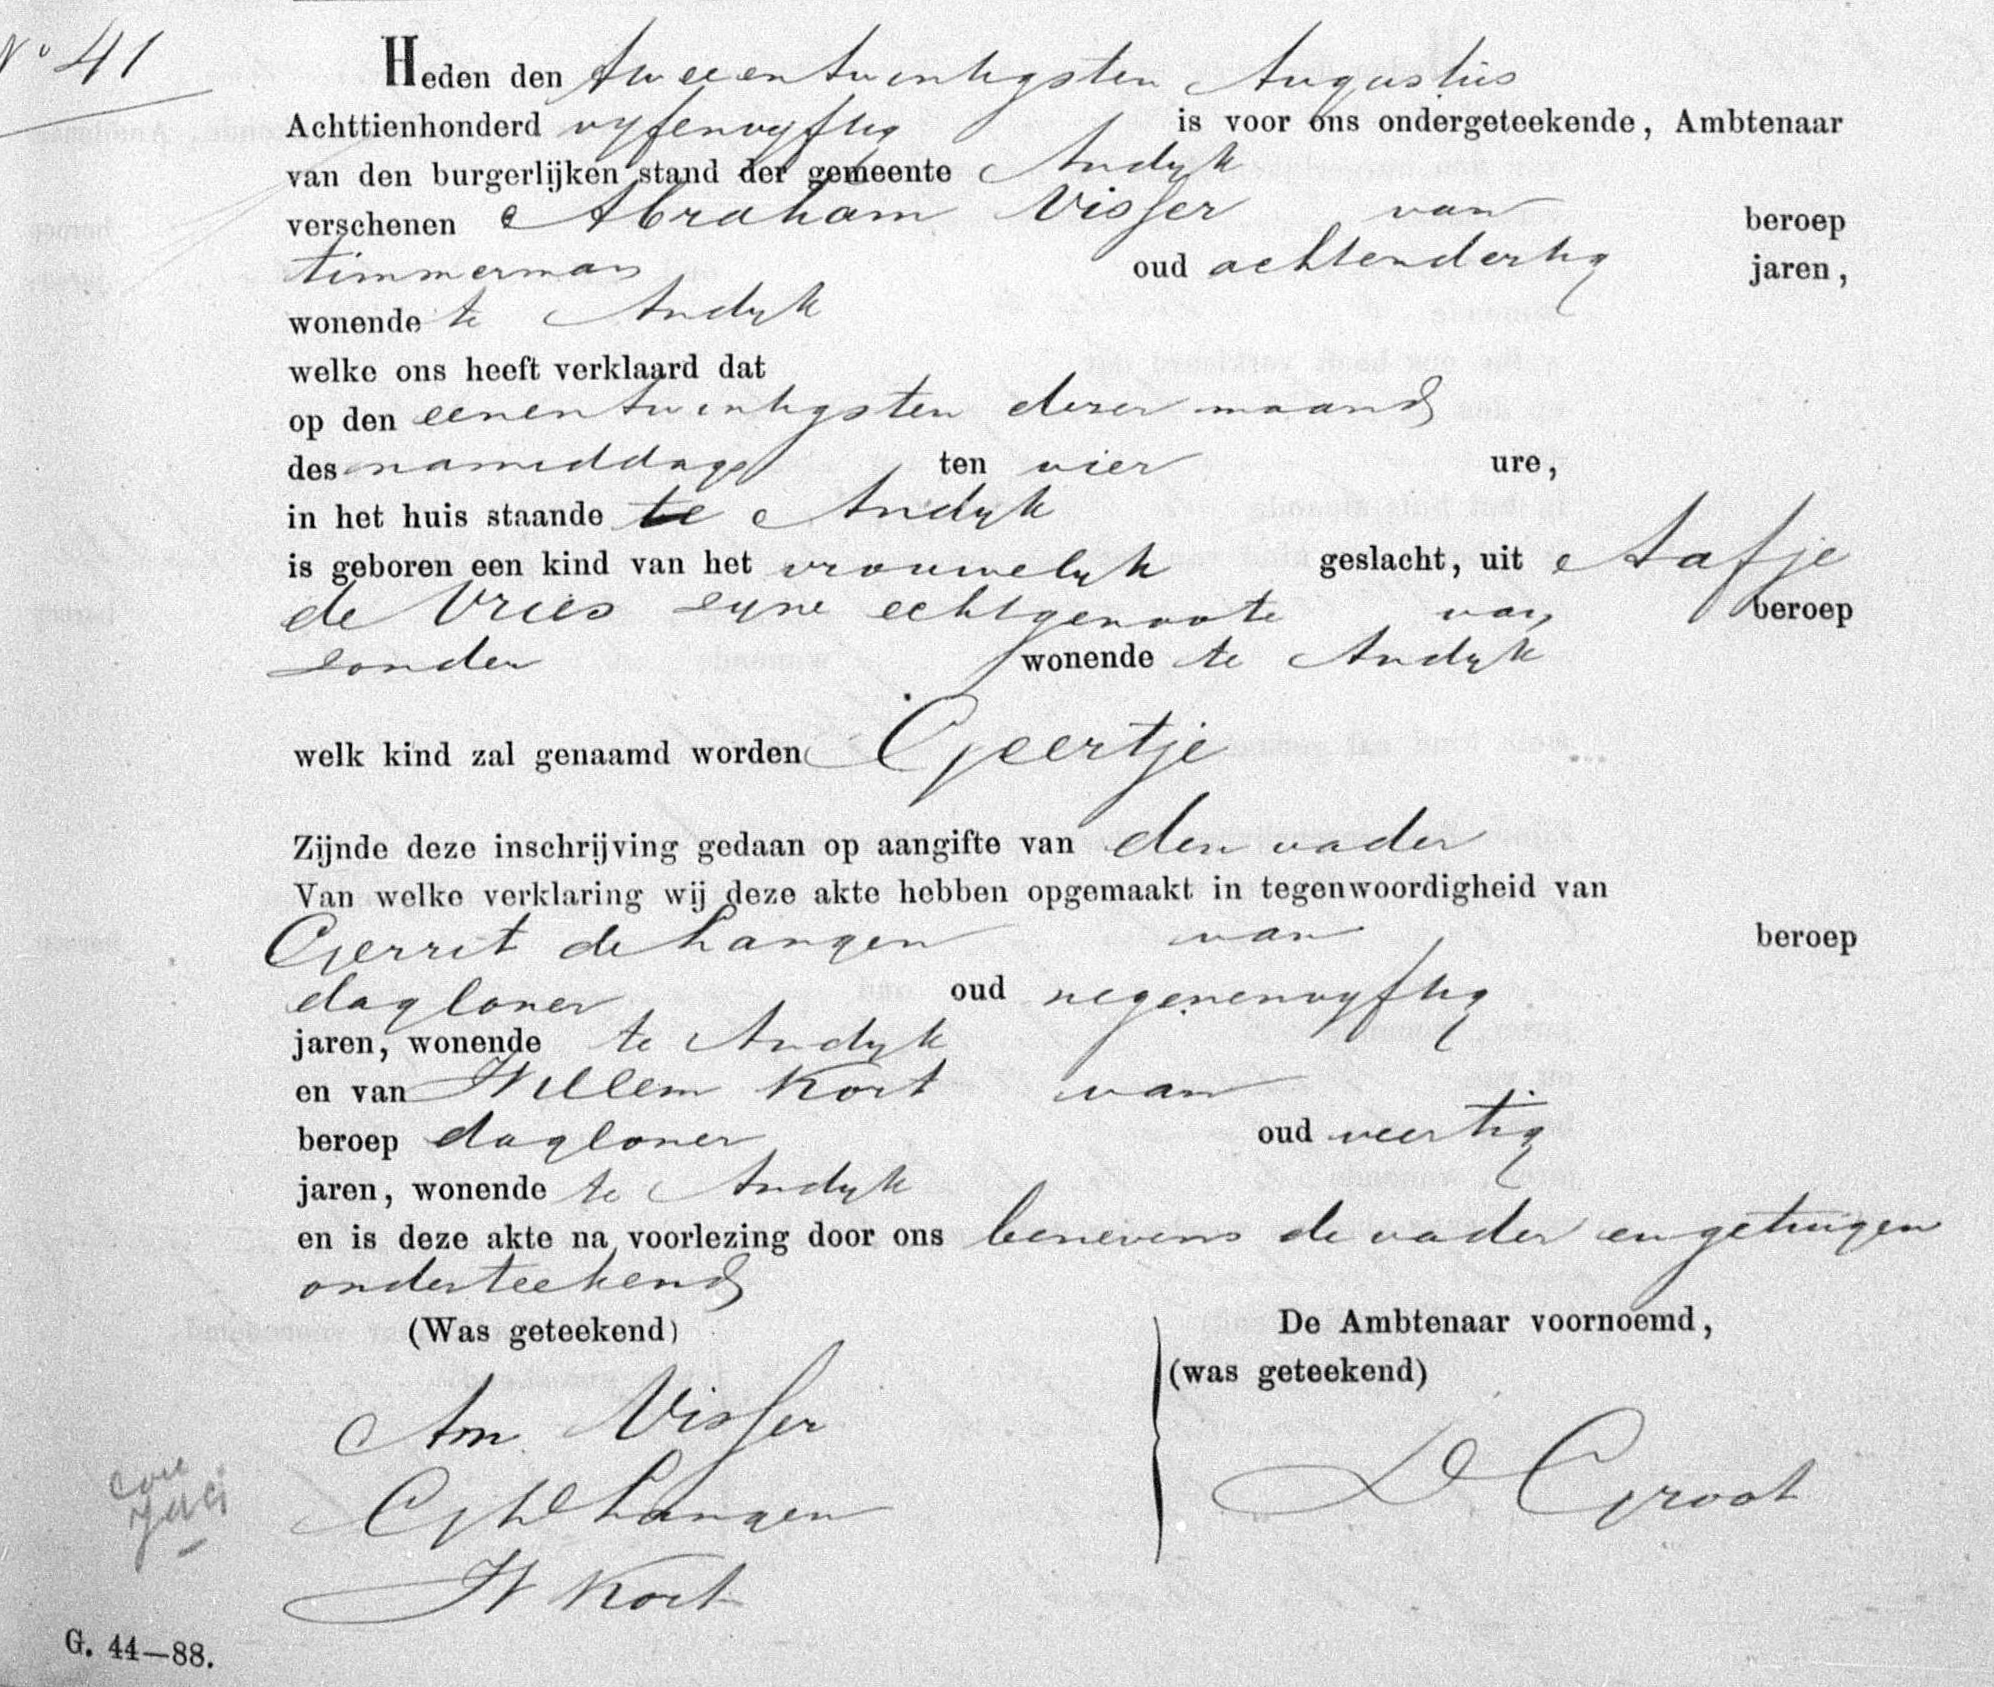 No 41
Heden den tweeentwintigsten Augustus
Achttienhonderd vyfenvyftig is voor ons ondergeteekende, Ambtenaar
van den burgerlijken stand der gemeente Andyk
verschenen Abraham Visser van beroep
timmerman oud achtendertig jaren,
wonende te Andyk
welke ons heeft verklaard dat
op den eenentwintigsten dezer maand
des namiddags ten vier ure,
in het huis staande te Andyk
is geboren een kind van het vrouwelyk geslacht, uit Aafje
de Vries zyne echtgenoote van beroep
zonder wonende te Andyk
welk kind zal genaamd worden Geertje
Zijnde deze inschrijving gedaan op aangifte van den vader
Van welke verklaring wij deze akte hebben opgemaakt in tegenwoordigheid van
Gerrit de Langen van beroep
dagloner oud negenenvyftig
jaren, wonende te Andyk
en van Willem Kort van
beroep dagloner oud veertig
jaren, wonende te Andyk
en is deze akte na voorlezing door ons benevens de vader en getuigen
onderteekend
(Was geteekend) De Ambtenaar voornoemd,
(was geteekend)
Am Visser
D Groot
G de Langen
W Kort
G. 44—88.